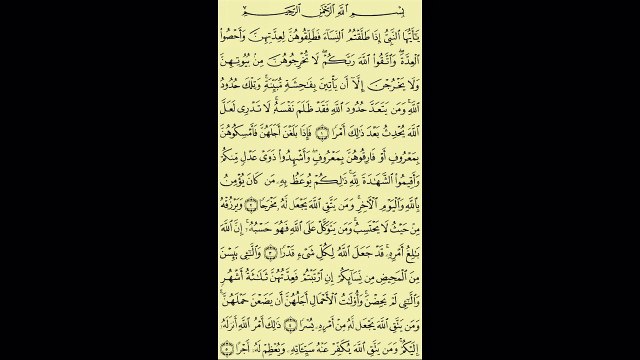 بِسْمِ اللَّهِ الرَّحْمَٰنِ الرَّحِيمِ
يَٰٓأَيُّهَا النَّبِيُّ إِذَا طَلَّقْتُمُ النِّسَآءَ فَطَلِّقُوهُنَّ لِعِدَّتِهِنَّ وَأَحْصُوا
الْعِدَّةَ ۖ وَاتَّقُوا اللَّهَ رَبَّكُمْ ۖ لَا تُخْرِجُوهُنَّ مِنۢ بُيُوتِهِنَّ
وَلَا يَخْرُجْنَ إِلَّآ أَن يَأْتِينَ بِفَٰحِشَةٍ مُّبَيِّنَةٍ ۚ وَتِلْكَ حُدُودُ
اللَّهِ ۚ وَمَن يَتَعَدَّ حُدُودَ اللَّهِ فَقَدْ ظَلَمَ نَفْسَهُۥ ۚ لَا تَدْرِى لَعَلَّ
اللَّهَ يُحْدِثُ بَعْدَ ذَٰلِكَ أَمْرًا ﴿١﴾ فَإِذَا بَلَغْنَ أَجَلَهُنَّ فَأَمْسِكُوهُنَّ
بِمَعْرُوفٍ أَوْ فَارِقُوهُنَّ بِمَعْرُوفٍ وَأَشْهِدُوا ذَوَىْ عَدْلٍ مِّنكُمْ
وَأَقِيمُوا الشَّهَٰدَةَ لِلَّهِ ۚ ذَٰلِكُمْ يُوعَظُ بِهِۦ مَن كَانَ يُؤْمِنُ
بِاللَّهِ وَالْيَوْمِ الْءَاخِرِ ۚ وَمَن يَتَّقِ اللَّهَ يَجْعَل لَّهُۥ مَخْرَجًا ﴿٢﴾ وَيَرْزُقْهُ
مِنْ حَيْثُ لَا يَحْتَسِبُ ۚ وَمَن يَتَوَكَّلْ عَلَى اللَّهِ فَهُوَ حَسْبُهُۥٓ ۚ إِنَّ اللَّهَ
بَٰلِغُ أَمْرِهِۦ ۚ قَدْ جَعَلَ اللَّهُ لِكُلِّ شَىْءٍ قَدْرًا ﴿٣﴾ وَالَّٰٓـِٔى يَئِسْنَ
مِنَ الْمَحِيضِ مِن نِّسَآئِكُمْ إِنِ ارْتَبْتُمْ فَعِدَّتُهُنَّ ثَلَٰثَةُ أَشْهُرٍ
وَالَّٰٓـِٔى لَمْ يَحِضْنَ ۚ وَأُولَٰتُ الْأَحْمَالِ أَجَلُهُنَّ أَن يَضَعْنَ حَمْلَهُنَّ ۚ
وَمَن يَتَّقِ اللَّهَ يَجْعَل لَّهُۥ مِنْ أَمْرِهِۦ يُسْرًا ﴿٤﴾ ذَٰلِكَ أَمْرُ اللَّهِ أَنزَلَهُۥٓ
إِلَيْكُمْ ۚ وَمَن يَتَّقِ اللَّهَ يُكَفِّرْ عَنْهُ سَيِّـَٔاتِهِۦ وَيُعْظِمْ لَهُۥٓ أَجْرًا ﴿٥﴾